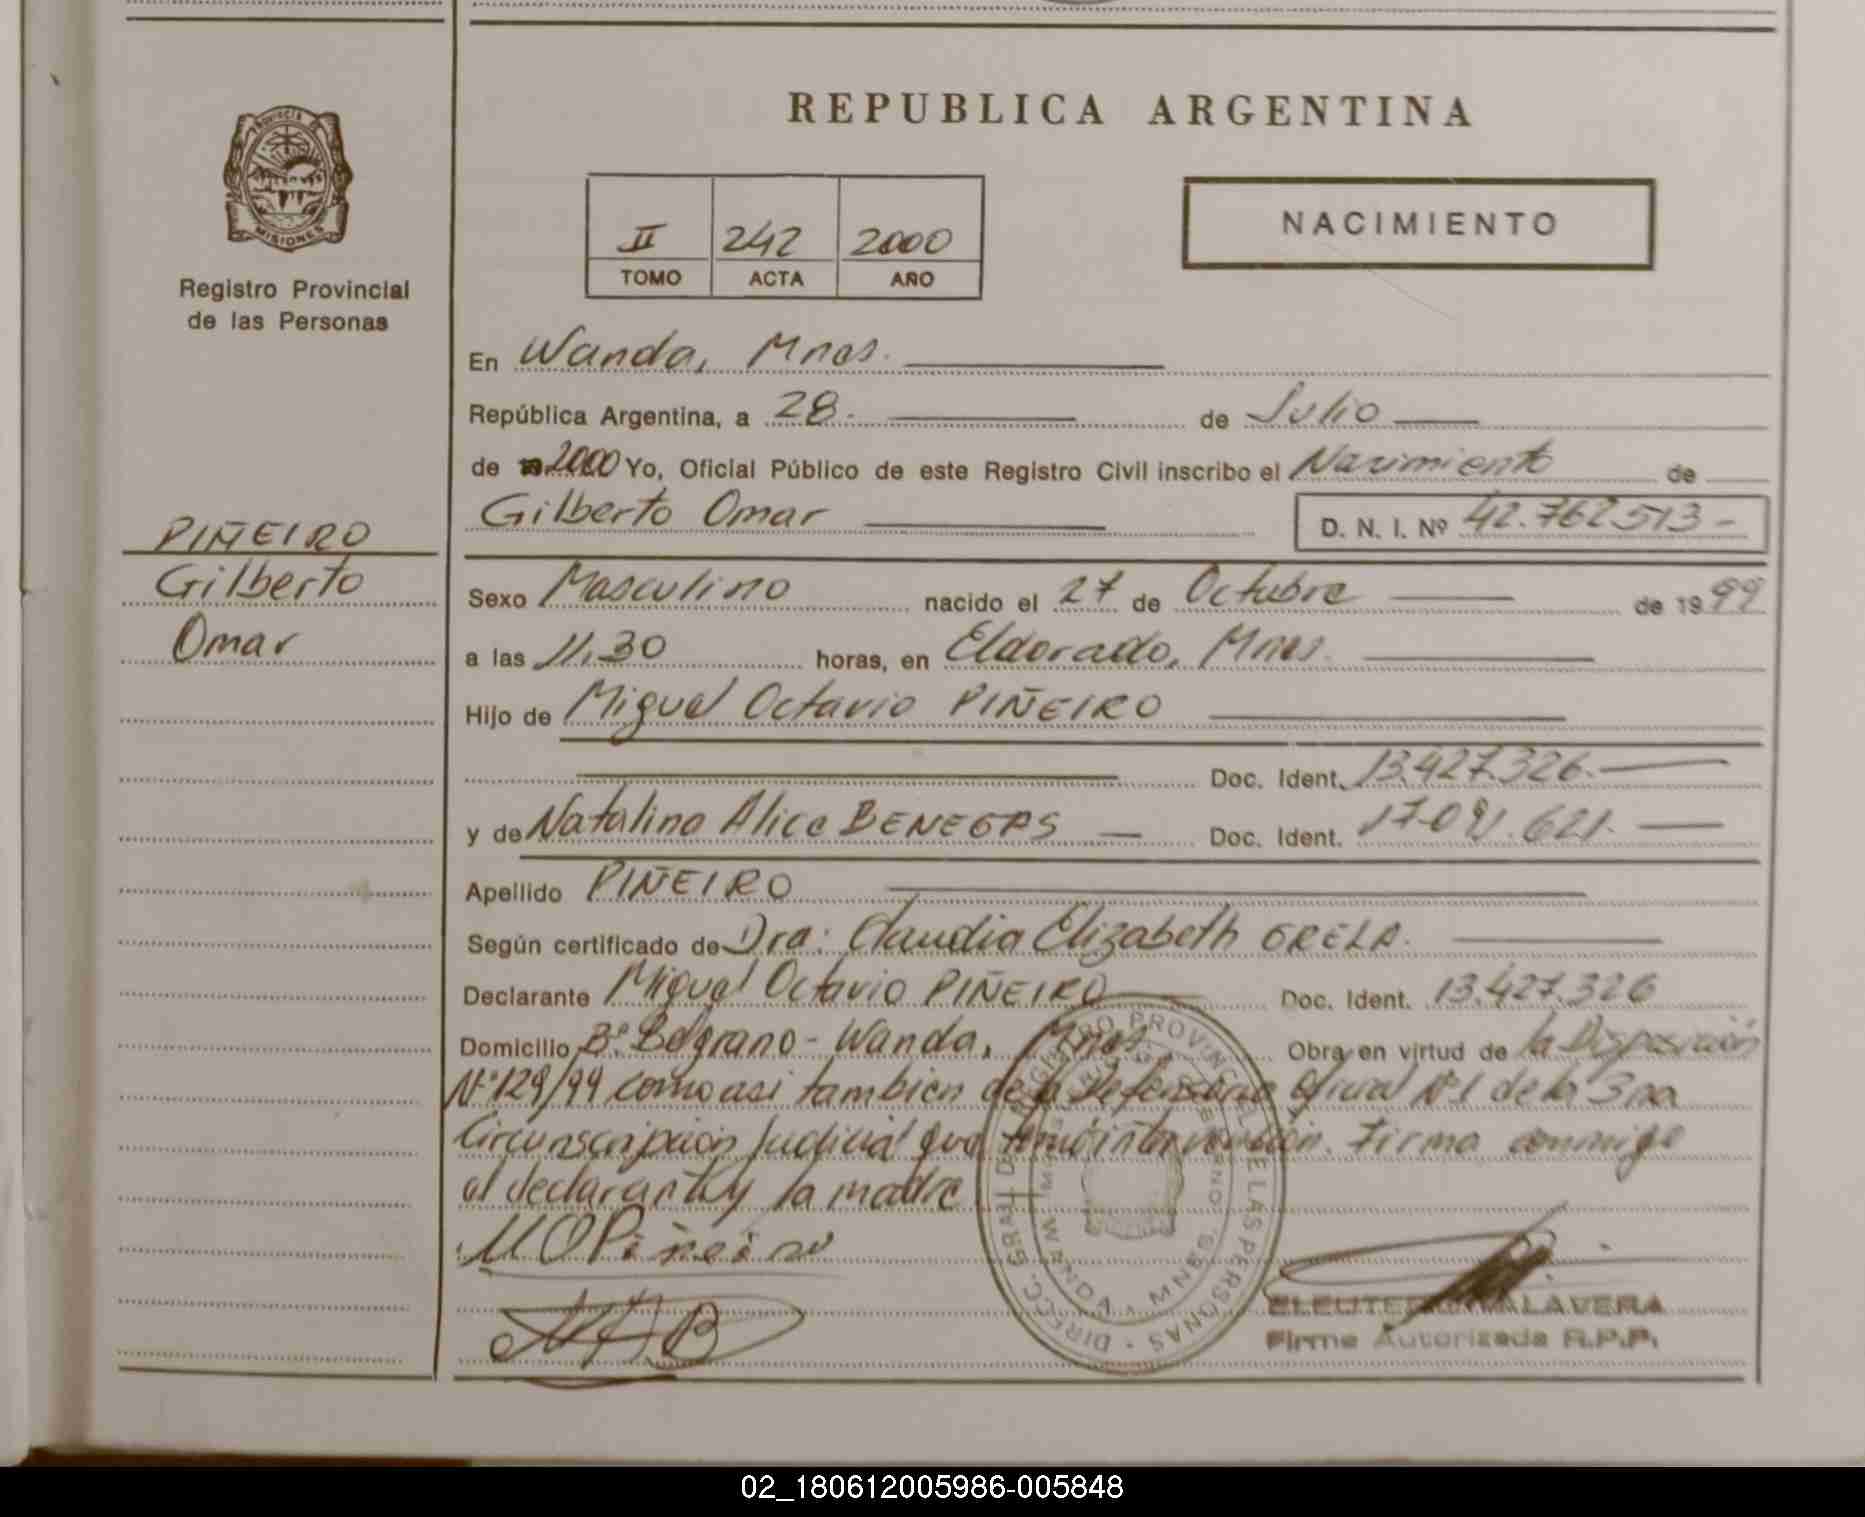 REPUBLICA ARGENTINA
PROVINCIA DE
MISIONES
Registro Provincial
de las Personas
II 242 2000
TOMO ACTA AÑO
NACIMIENTO
En Wanda, Mnes.
República Argentina, a 28. de Julio
de 19 2000 Yo, Oficial Público de este Registro Civil inscribo el Nacimiento de
Gilberto Omar D. N. I. Nº 42.762.513-
PIÑEIRO
Gilberto
Omar
Sexo Masculino nacido el 27 de Octubre de 1999
a las 11,30 horas, en Eldorado, Mnes.
Hijo de Miguel Octavio PIÑEIRO
Doc. Ident. 13.427.326.
y de Natalina Alice BENEGAS Doc. Ident. 17.091.621.
Apellido PIÑEIRO
Según certificado de Dra: Claudia Elizabeth GRELA.
Declarante Miguel Octavio PIÑEIRO Doc. Ident. 13.427.326
Domicilio Bº Belgrano - Wanda, Mnes. Obra en virtud de la Disposición
Nº 129/99 como asi tambien de la Defensoria Oficial Nº1 de la 3ra
Circunscripción Judicial que tomó intervención. Firma conmigo
el declarante y la madre
MO Piñeiro
ELEUTERIO TALAVERA
Firma Autorizada R.P.P.
02_180612005986-005848